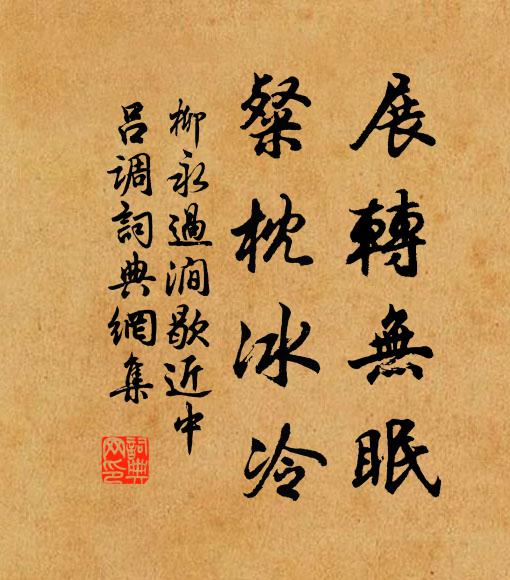 展轉無眠
粲枕冰冷
柳永過澗歇近中
呂调詞典網集
詞典网印